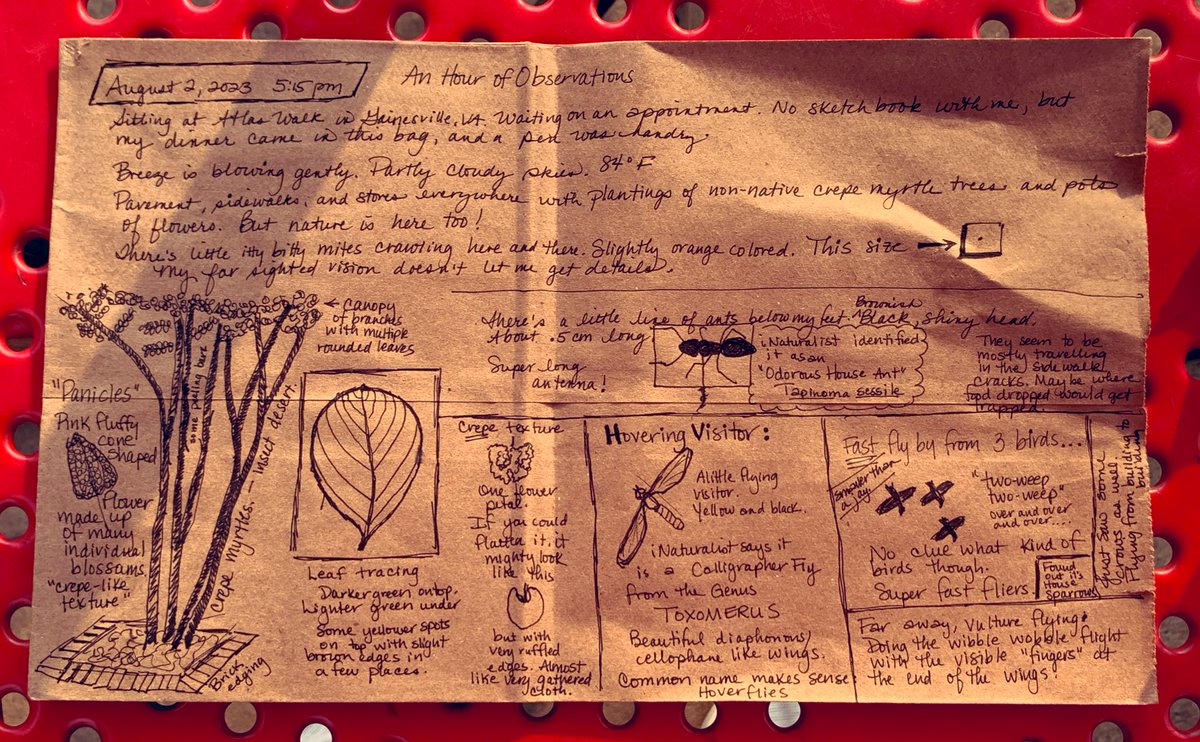 August 2, 2023 5:15 pm
An Hour of Observations
Sitting at Atlas Walk in Gainesville, VA. Waiting on an appointment. No sketch book with me, but
my dinner came in this bag, and a pen was handy.
Breeze is blowing gently. Partly cloudy skies. 84°F
Pavement, sidewalks, and stores everywhere with plantings of non-native crepe myrtle trees and pots
of flowers. But nature is here too!
There's little itty bitty mites crawling here and there. Slightly orange colored. This size
My far sighted vision doesn't let me get details.
canopy
of branches
with multiple
rounded leaves
some puling bark
Crepe myrtles. - insect desert
"Panicles"
Pink fluffy
cone
shaped
flower
made up
of many
individual
blossoms.
"crepe-like
texture"
Brick
edging
Leaf tracing
Darker green on top.
Lighter green under
Some yellower spots
on top with slight
brown edges in
a few places.
There's a little line of ants below my feet. Black, shiny head.
Brownish
About .5 cm long
Super long
antenna!
iNaturalist identified
it as an
"Odorous House Ant"
Tapinoma sessile
They seem to be
mostly travelling
in the sidewalk
cracks. Maybe where
food dropped would get
trapped.
Crepe texture
One flower
petal.
If you could
flatten it, it
mighty look
like this
but with
very ruffled
edges. Almost
like very gathered
cloth.
Hovering Visitor:
A little flying
visitor.
Yellow and black.
iNaturalist says it
is a Calligrapher Fly
from the Genus
TOXOMERUS
Beautiful diaphonous/
cellophane like wings.
Common name makes sense:
Hoverflies
Fast fly by from 3 birds...
smaller than
a jay
"two-weep
two-weep"
over and over
and over....
No clue what kind of
birds though.
Super fast fliers.
Found
out it's
House
sparrows
Just saw some
flying from building to
building
Far away, vulture flying:
Doing the wibble wobble flight
with the visible "fingers" at
the end of the wings!